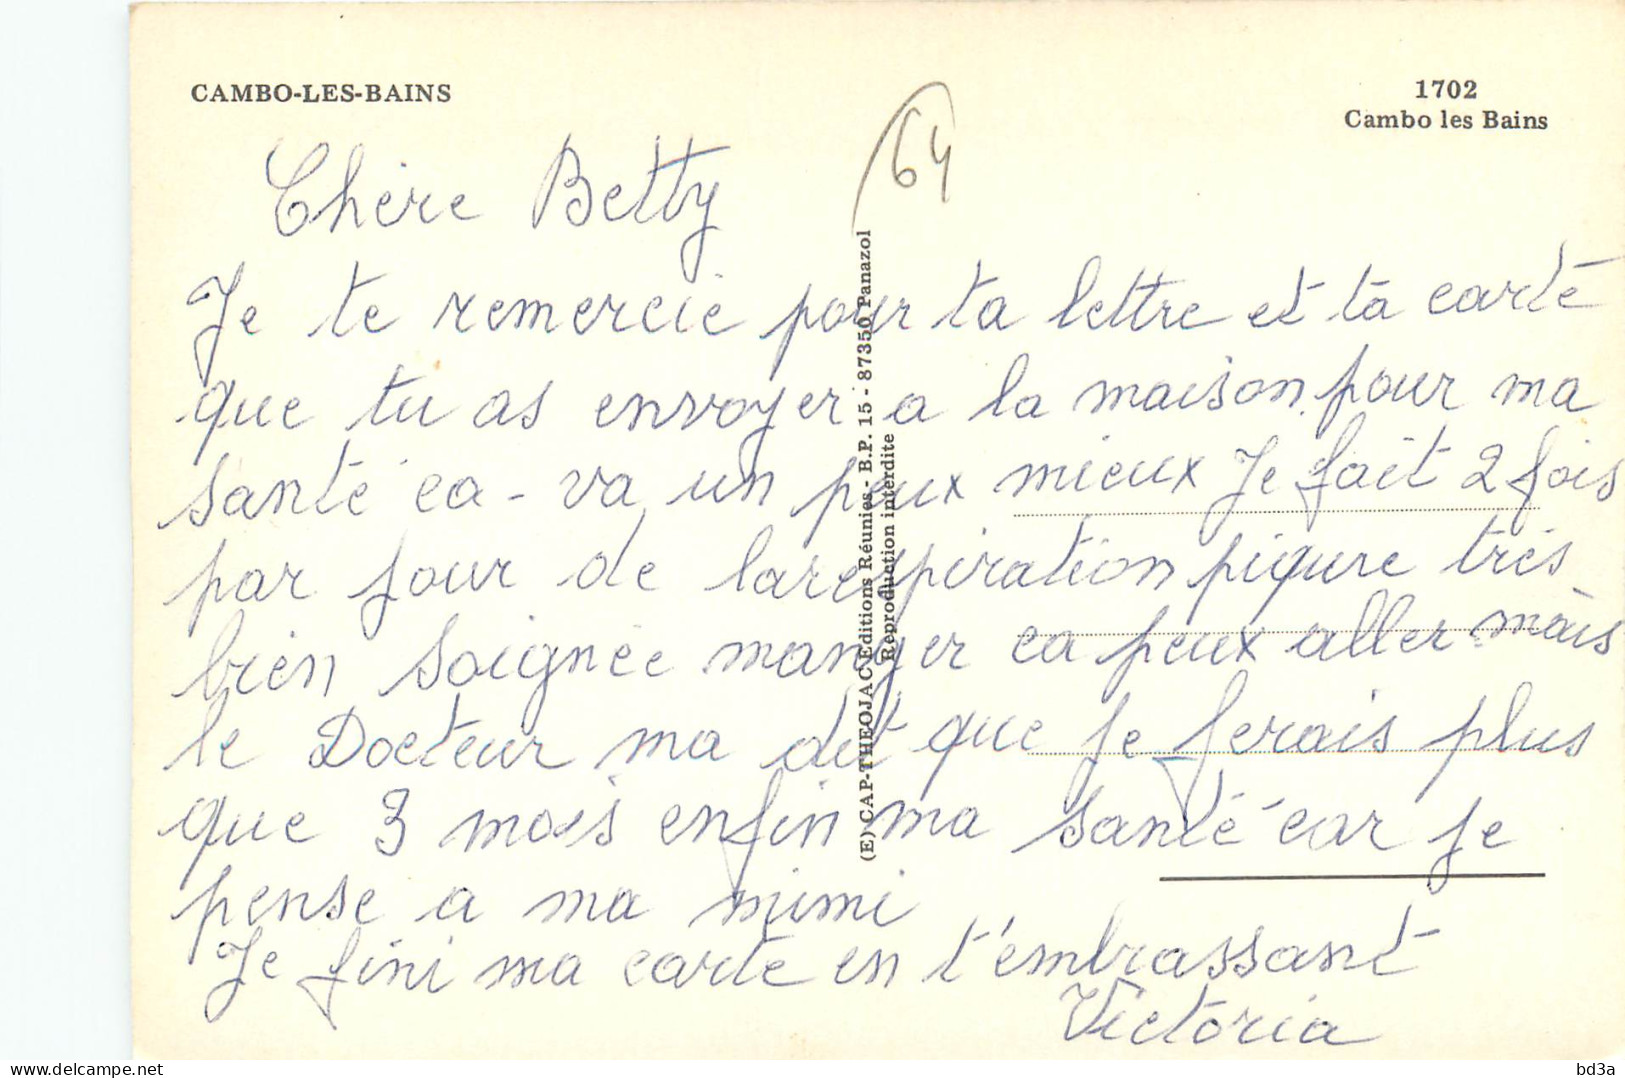 CAMBO-LES-BAINS
1702
Cambo les Bains
64
Chère Betty
Je te remercie pour ta lettre et ta carte
que tu as envoyer a la maison pour ma
santé ca - va un peux mieux Je fait 2 fois
par jour de larespiration piqure très
bien soignée manger ca peux aller mais
le Docteur ma dit que je ferais plus
que 3 mois enfin ma santé car je
pense a ma mimi
Je fini ma carte en t'embrassant
Victoria
(E) CAP-THEOJAC Editions Réunies - B.P. 15 - 87350 Panazol
Reproduction interdite
bd3a